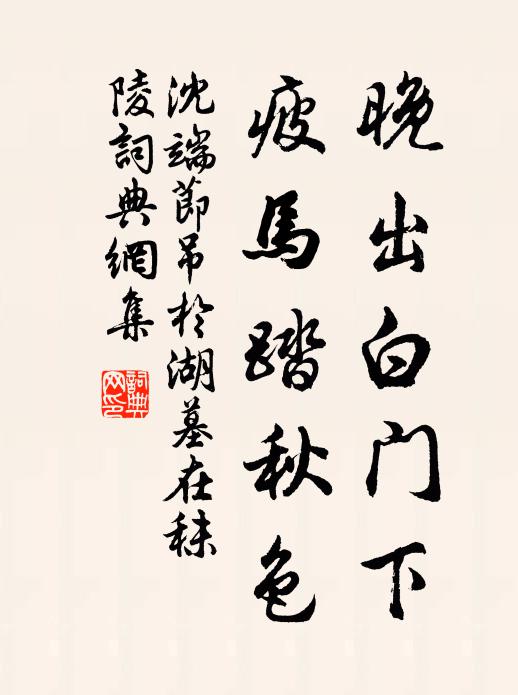 晚出白門下
疲馬踏秋色
沈端節吊於湖墓在秣
陵詞典網集
詞典网印